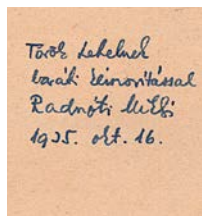 Török Lehelnek
baráti kézszorítással
Radnóti Miklós
1935. okt. 16.